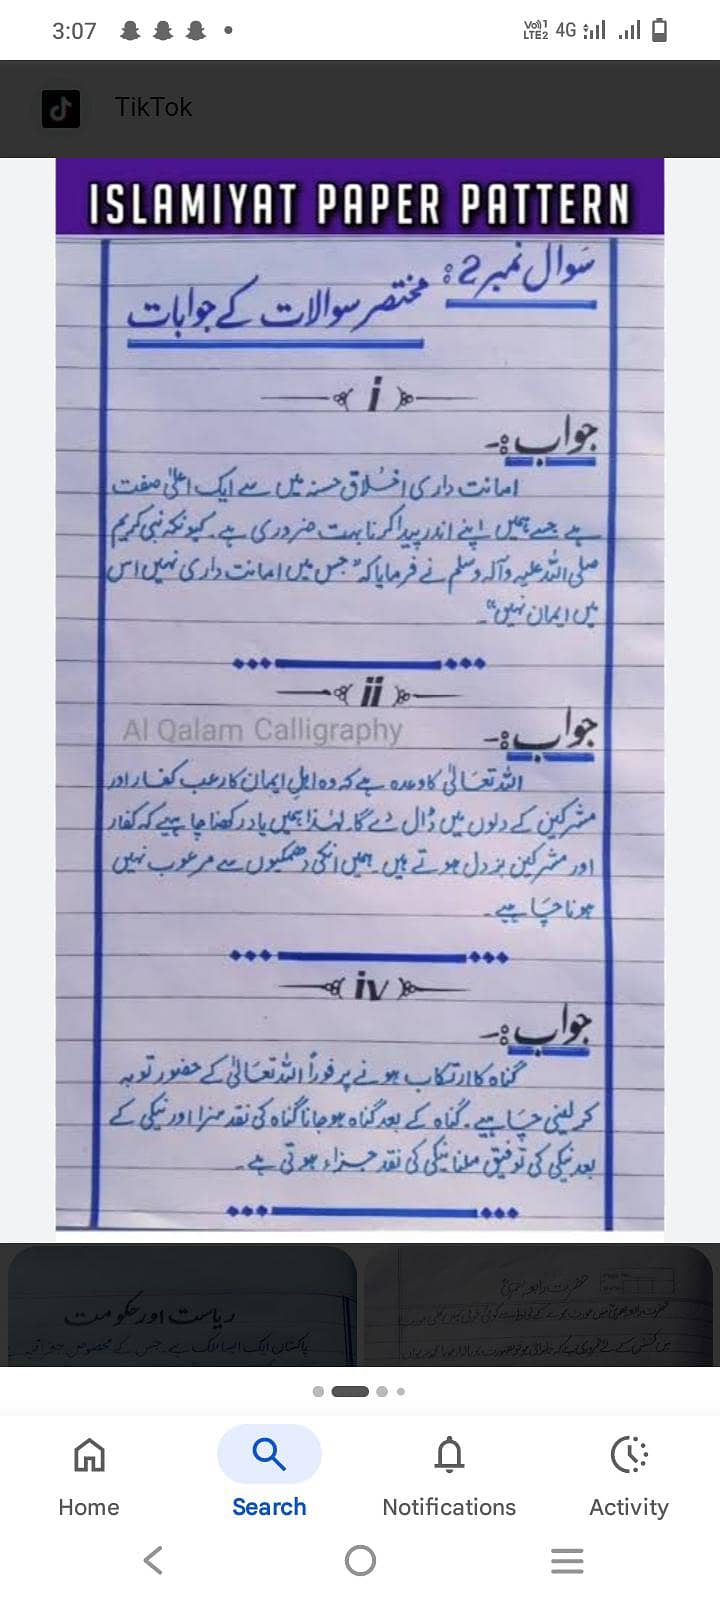 3:07
Vo))1 LTE2 4G
TikTok
ISLAMIYAT PAPER PATTERN
سوال نمبر 2:
مختصر سوالات کے جوابات
i
جواب:-
امانت داری اخلاق حسنہ میں سے ایک اعلیٰ صفت
ہے جسے ہمیں اپنے اندر پیدا کرنا بہت ضروری ہے۔ کیونکہ نبی کریم
صلی اللہ علیہ وآلہ وسلم نے فرمایا کہ "جس میں امانت داری نہیں اس
میں ایمان نہیں"۔
ii
Al Qalam Calligraphy
جواب:-
اللہ تعالیٰ کا وعدہ ہے کہ وہ اہل ایمان کا رعب کفار اور
مشرکین کے دلوں میں ڈال دے گا۔ لہٰذا ہمیں یاد رکھنا چاہیے کہ کفار
اور مشرکین بزدل ہوتے ہیں۔ ہمیں انکی دھمکیوں سے مرعوب نہیں
ہونا چاہیے۔
iv
جواب:-
گناہ کا ارتکاب ہونے پر فوراً اللہ تعالیٰ کے حضور توبہ
کر لینی چاہیے۔ گناہ کے بعد گناہ ہو جانا گناہ کی نقد سزا اور نیکی کے
بعد نیکی کی توفیق ملنا نیکی کی نقد جزاء ہوتی ہے۔
ریاست اور حکومت
پاکستان ایک ایسا ملک ہے۔ جس کے مخصوص جغرافیہ
Home
Search
Notifications
Activity